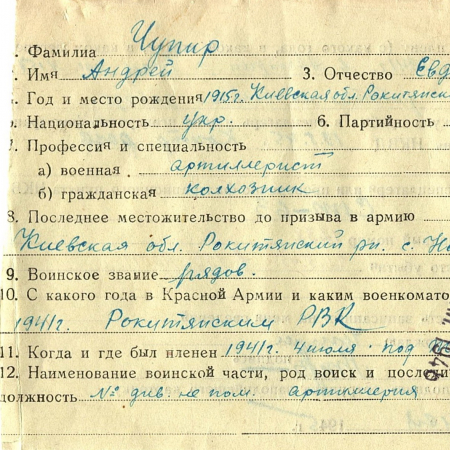 1. Фамилия Чупир
2. Имя Андрей 3. Отчество Евд
4. Год и место рождения 1915г. Киевская обл. Рокитянск
5. Национальность укр. 6. Партийность
7. Профессия и специальность
а) военная артиллерист
б) гражданская колхозник
8. Последнее местожительство до призыва в армию
Киевская обл. Рокитянский рн. с.
9. Воинское звание рядов.
10. С какого года в Красной Армии и каким военкомато
1941г. Рокитянским РВК
11. Когда и где был пленен 1941г. 4 июля под
12. Наименование воинской части, род войск и последн
должность № див. не пом. артиллерия